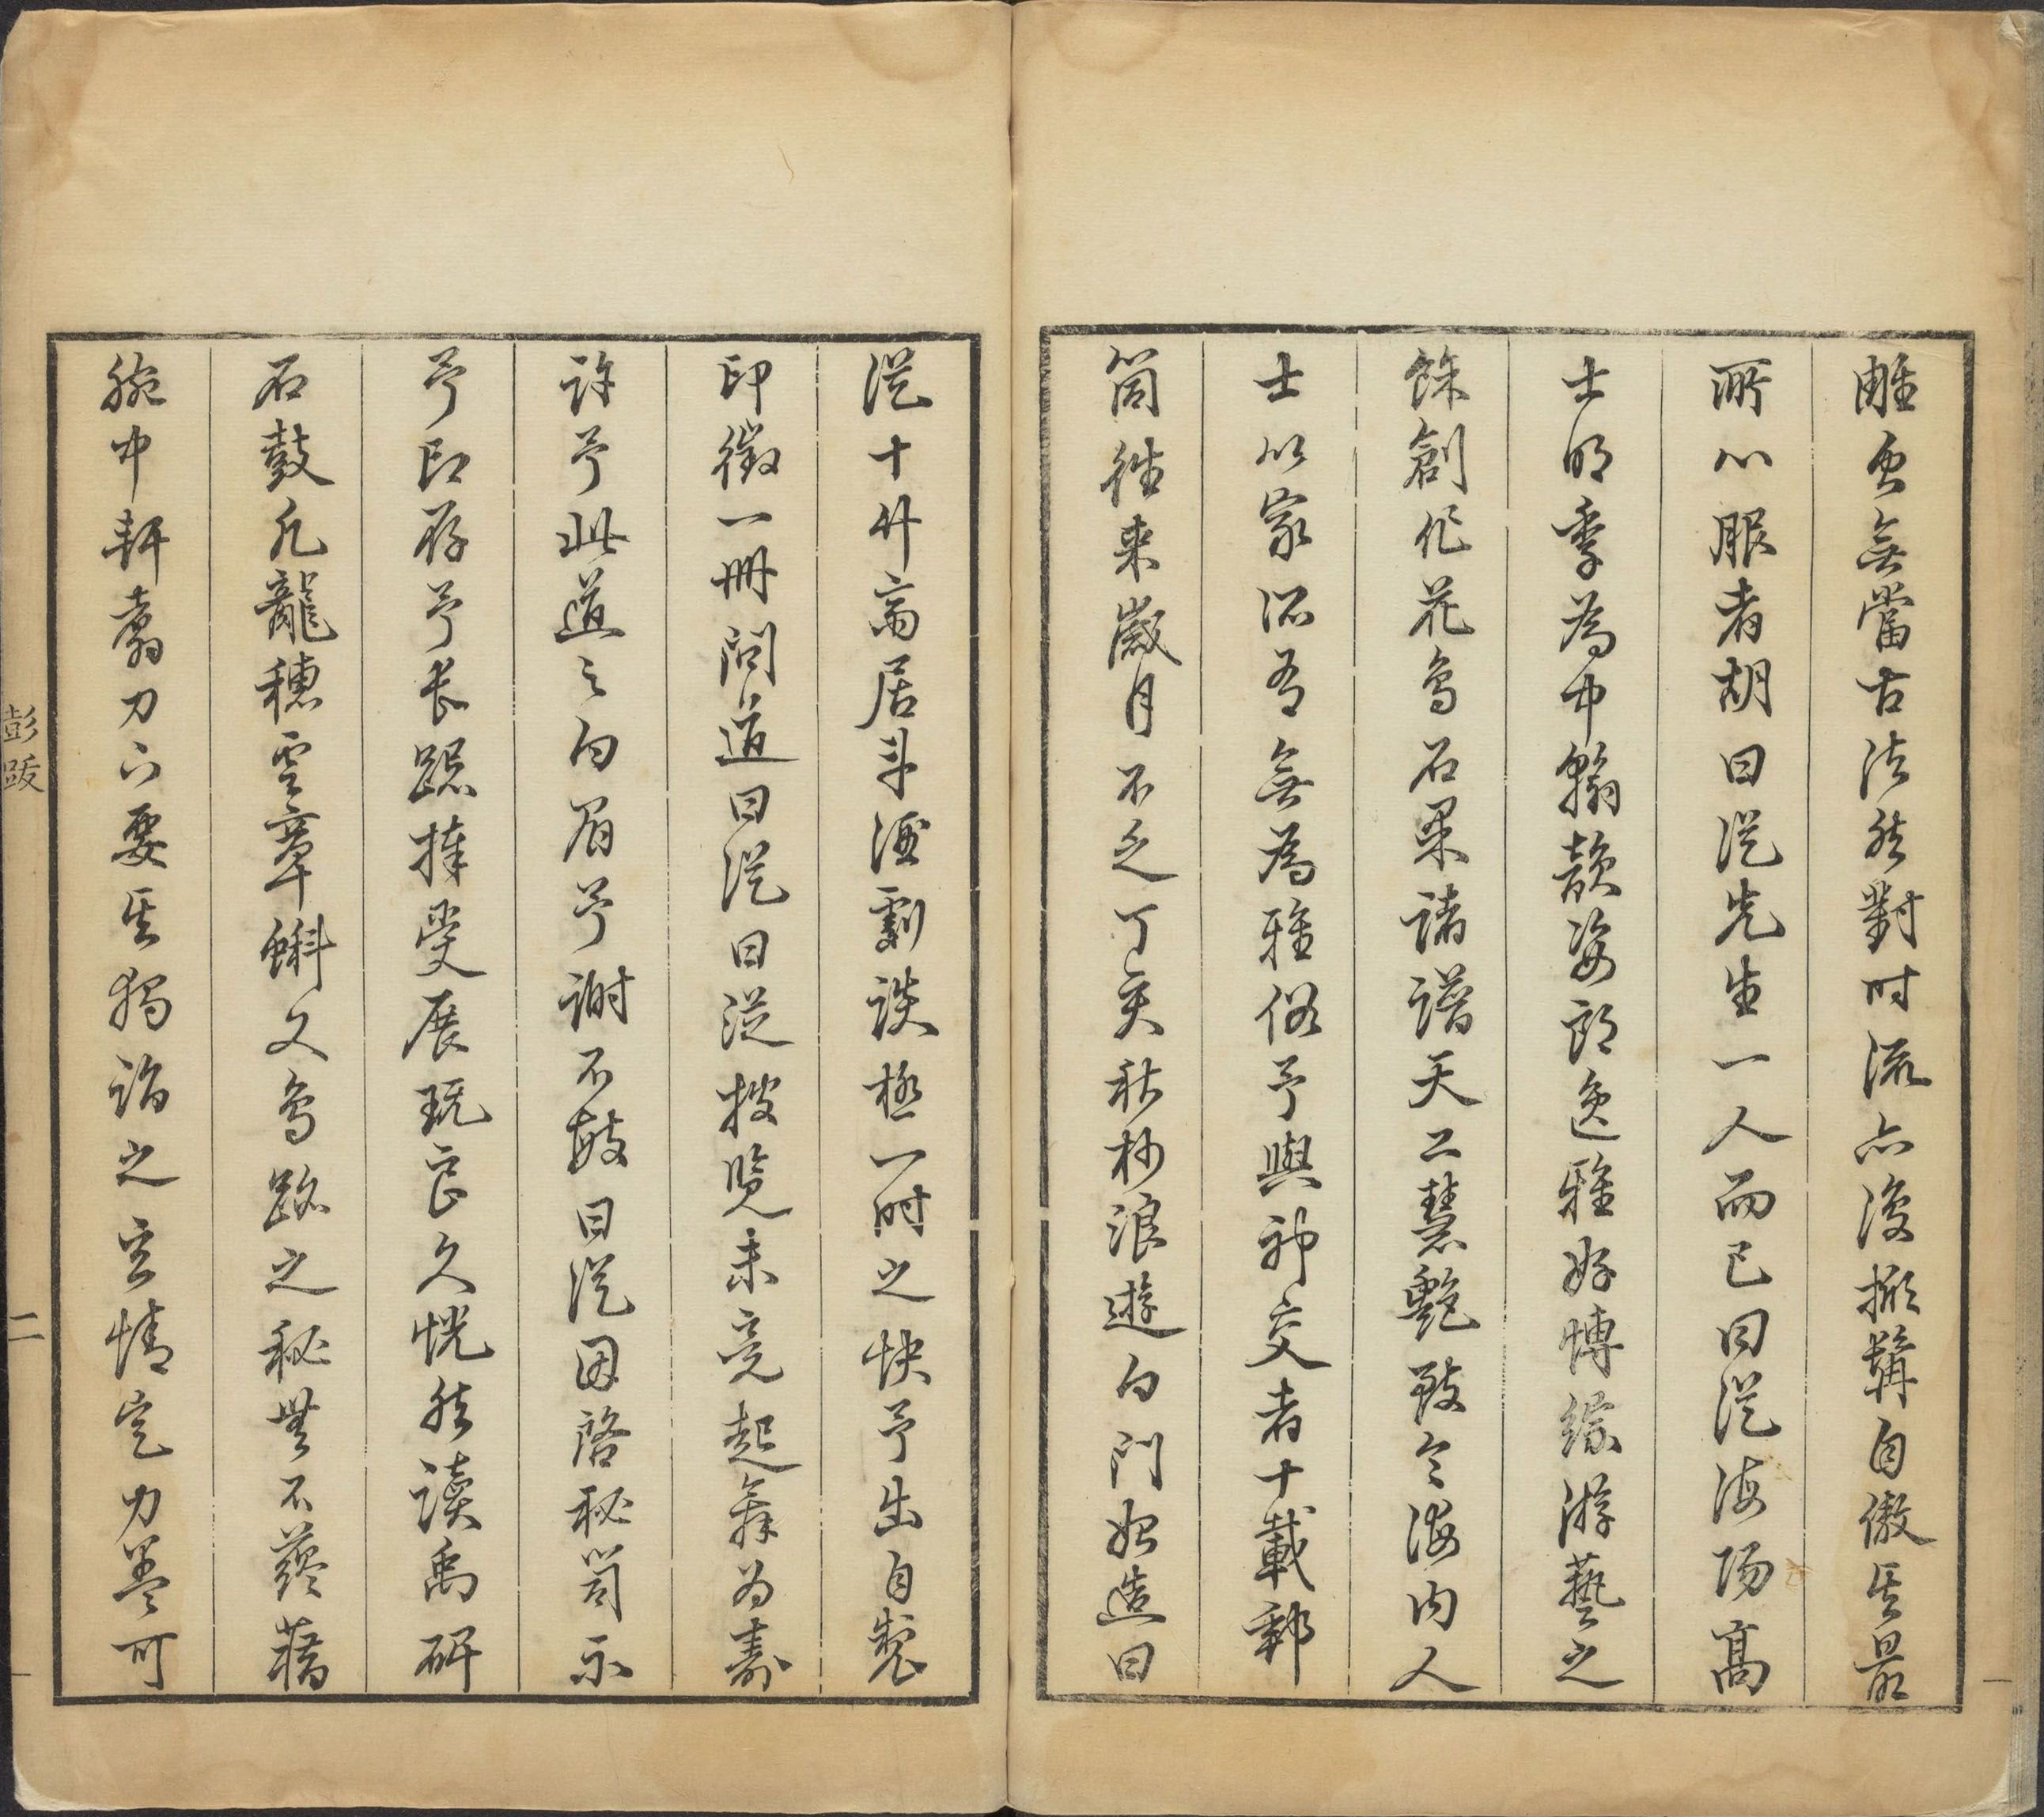 雕虫無當古法然對时流亦復掀髯自傲其最
所心服者胡曰從先生一人而已曰從海陽高
士明季為中翰韻姿朗逸雅好博綜游藝之
餘創作花鳥石果諸譜天工慧艷致令海内人
士以家所有無為雅俗予與神交者十載郵
筒往来歲月不乏丁亥秋杪浪遊白門始造曰
從十竹齋居斗酒劇談極一時之快予出自製
印徵一冊問道曰從曰從披覽未竟起舞为壽
許予此道之白眉予謝不敏曰從因啓秘笥示
予印存予長跽捧受展玩良久恍然讀禹碑
石鼓凡龍穗雲章蝌文鳥跡之秘無不蘊藉
腕中軒翥刀下要其獨詣之玄情定力葢可
彭跋
二